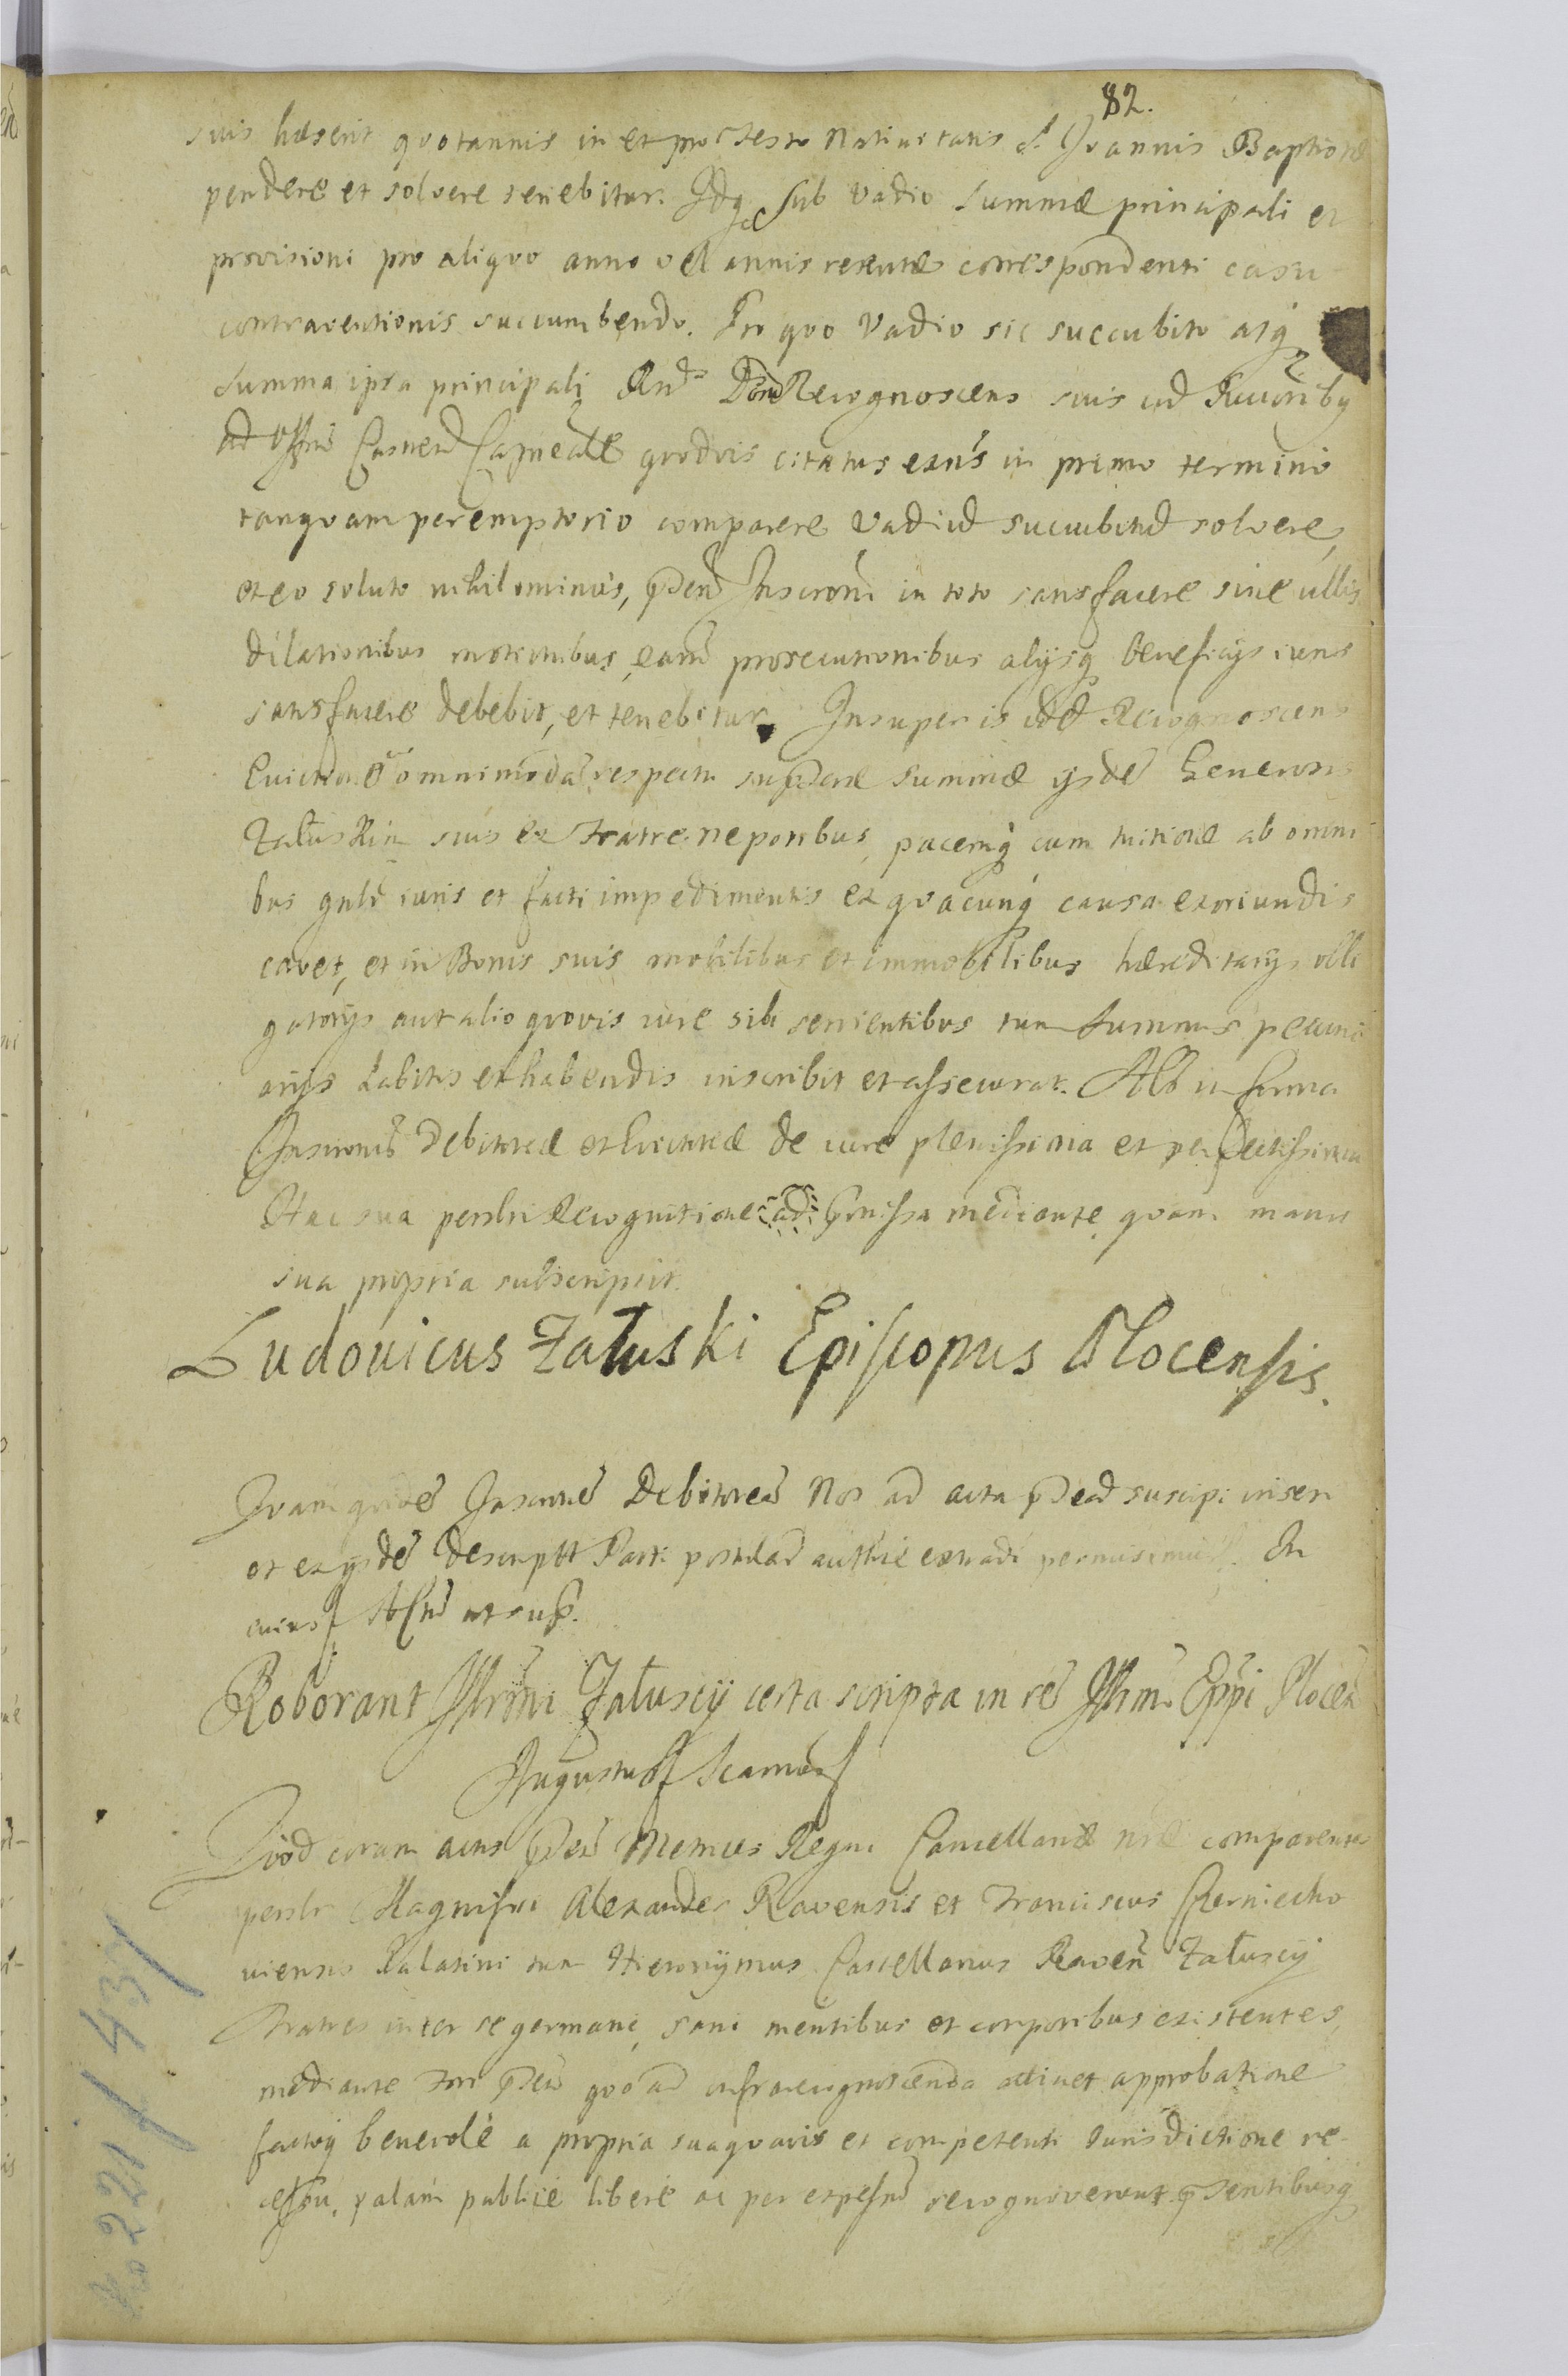 82.
suis hæserit quotannis in et pro Festo Nativitatis S. Joannis Baptistæ
pendere et solvere tenebitur. Idq sub vadio summæ principali et
provisioni pro aliquo anno vel annis retentæ correspondenti casu
contraventionis succumbendo. Pro quo Vadio sic succubito atq
summa ipsa principali Rnds Dnus Recognoscens suis cum Successoribus
ad Officiu Castren Capitneale quodvis citatus extns in primo termino
tanquam peremptorio comparere Vadiu succubitu solvere,
et eo soluto nihilominus, pnti Inscroni in toto satisfacere sine ullis
dilationibus motionibus, earu prosecutionibus alijsq beneficijs iuris
satisfacere debebit, et tenebitur. Insuper is ide Recognoscens
Evictione omnimoda respectu suprascriptæ summæ ijsde Generosis
Załuskim suis ex Fratre nepotibus, pacemq cum tuitione ab omni
bus gnlr iuris et facti impedimentis ex quacunq causa exoriundis
cavet, et in Bonis suis mobilibus et immobilibus hæreditarijs obli
gatorijs aut alio quovis iure sibi servientibus tum summis pecuni
arijs habitis et habendis inscribit et assecurat. Also in forma
Inscronis Debitoreæ et Evictoreæ de iure plenissima et perfectissima
Hac sua personali Recognitione ad pmissa mediante, quam manu
sua propria subscripsit.
Ludovicus Załuski Episcopus Plocensis.
Quam quide Inscrone Debitorea Nos ad acta pnta suscipi inseri
et ex ijsde descriptu Parti postulan authce extradi permisimus. In
cuius ut sup.
Roborant Illrmi Załuscij certa scripta in re Illrmi Eppi Plocen
Augustus
Quod coram actis pntibus Metrices Regni Cancellariæ nræ comparentes
personalr Magnifici Alexander Ravensis et Franciscus Czerniecho
viensis Palatini tum Hieronymus Castellanus Raven Załuscij
Fratres inter se germani, sani mentibus et corporibus existentes,
mediante Fori pntis quo ad infrarecognoscenda attinet approbatione
factoq benevole a propria sua quavis et competenti Jurisdictione re-
cessu, palam publice libere ac per expessum recognoverunt pntibusq
221/437